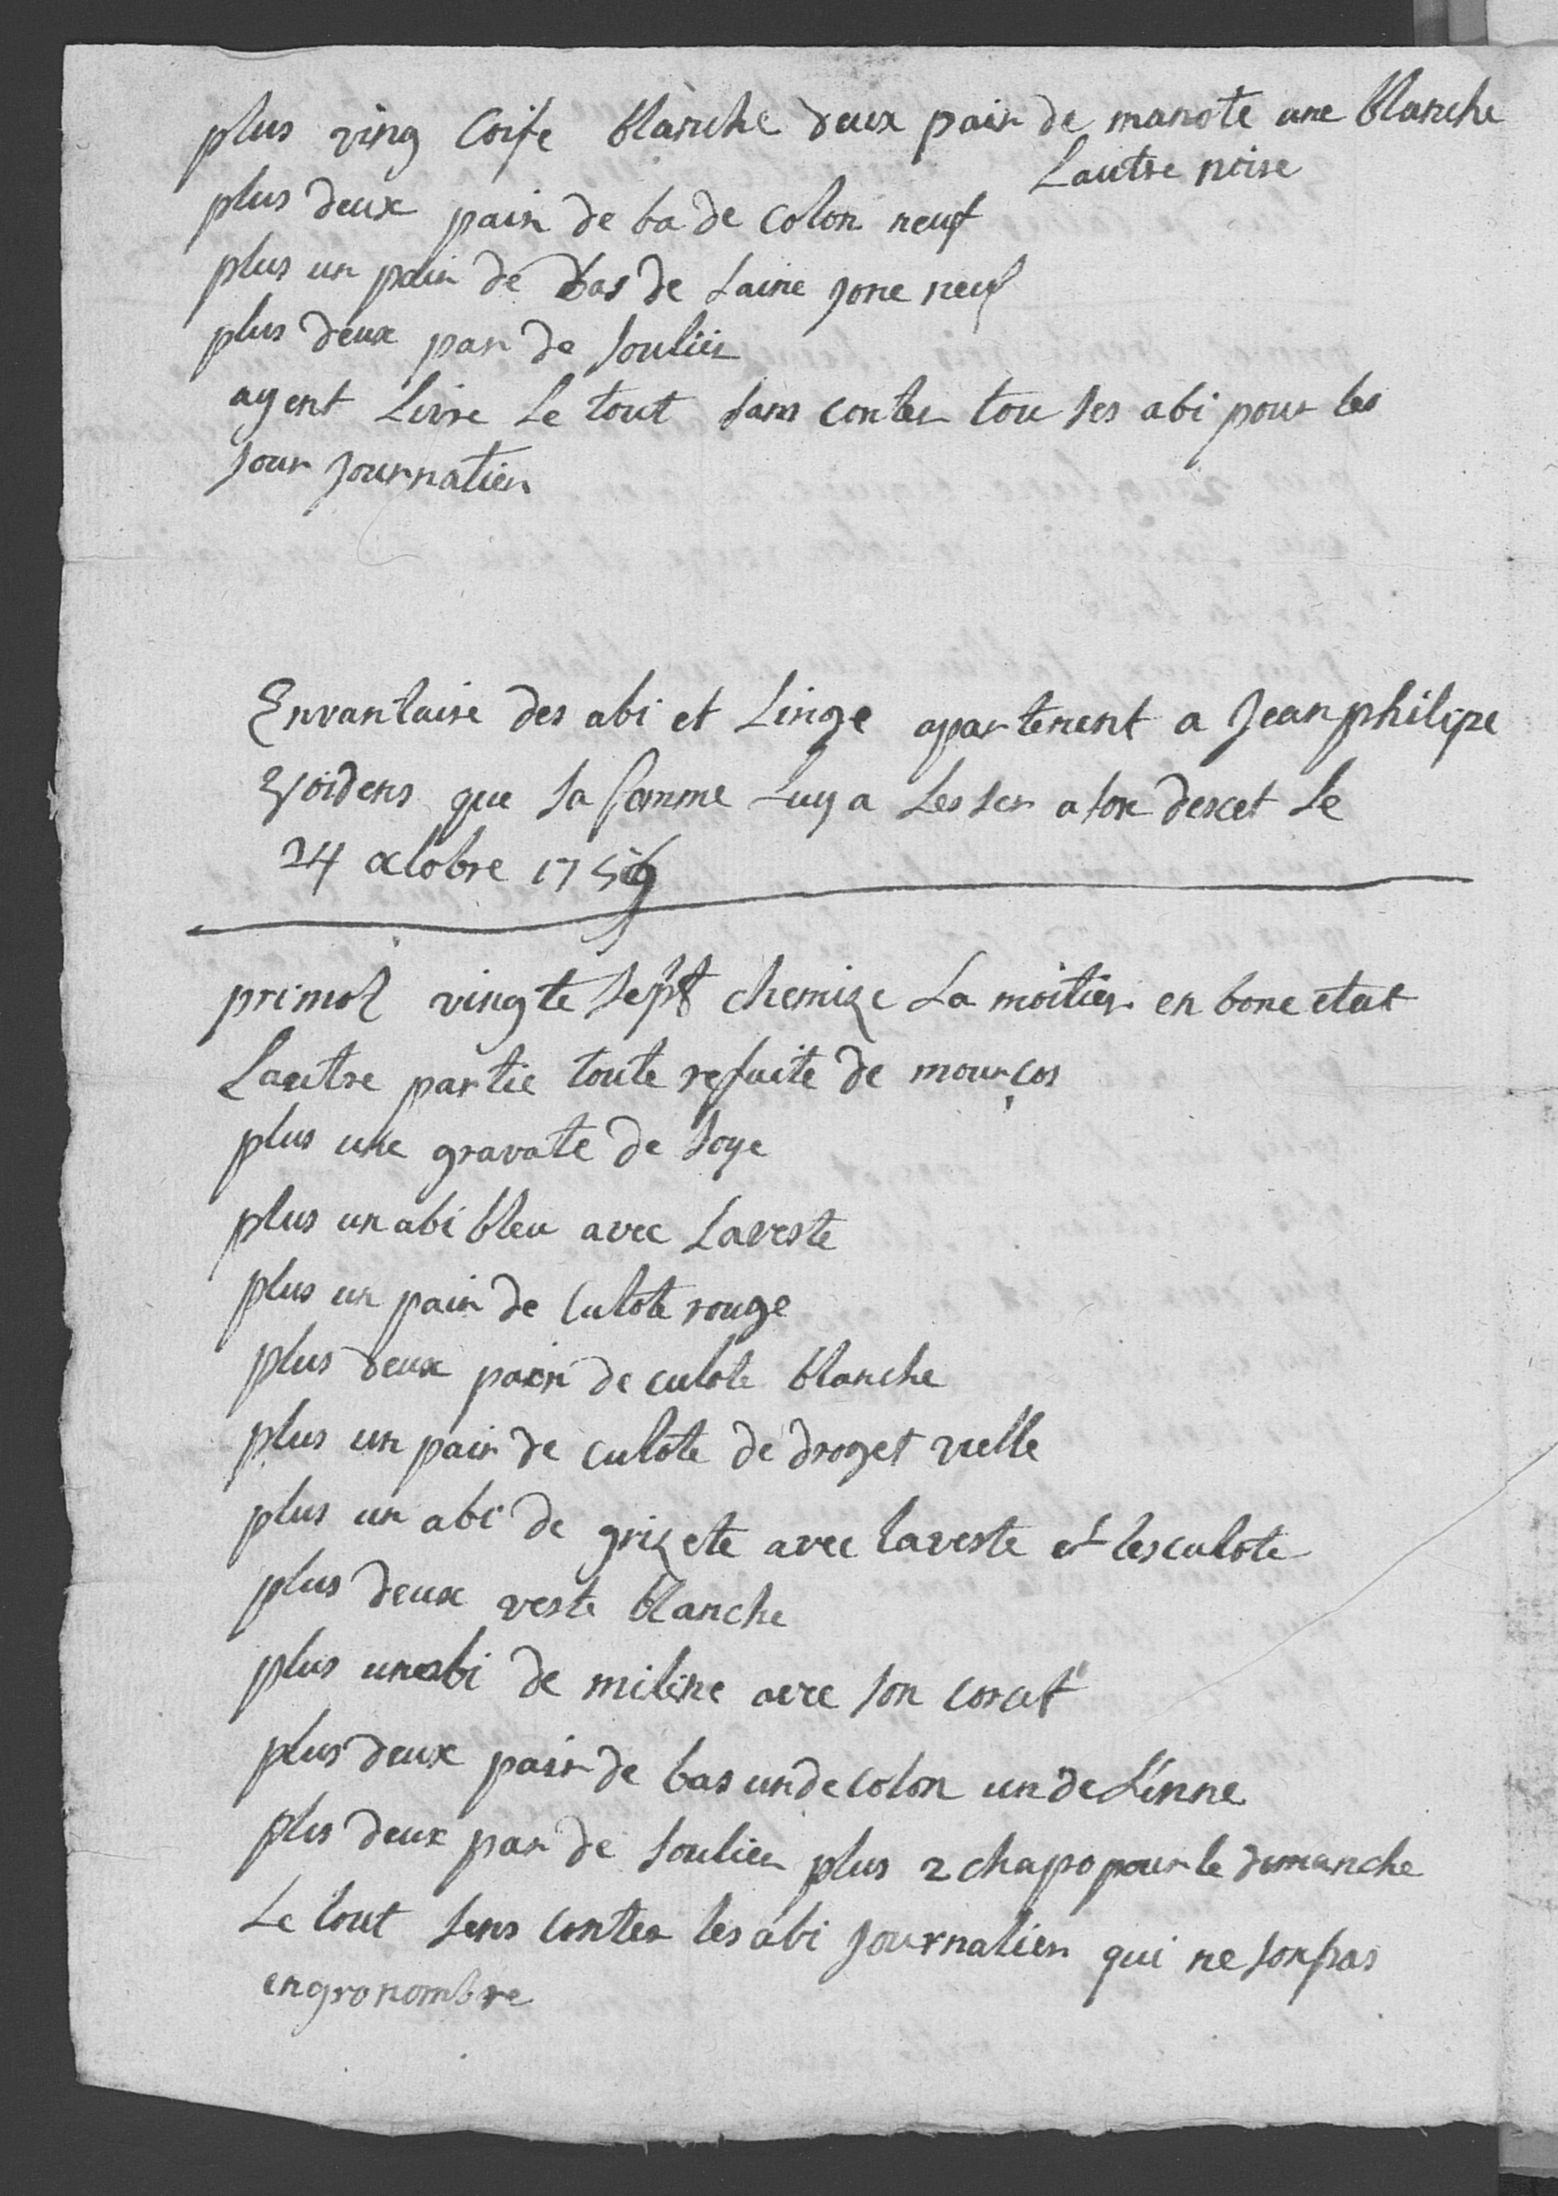 plus ving Coife blanche deux pair de manote une blanche
Lautre noire
plus deux pair de ba de coton neuf
plus un pair de bas de Laine jone neuf
plus deux par de soulier
agent Livre Le tout sans conter tou ses abi pour les
jour journatier
Envantaire des abi et Linge apartenent a Jean philipe
que sa famme Luy a Lesser a son deset Le
24 octobre 1759
primol vingte sept chemize La moitier en bone etat
Lautre partie toute refaite de mourços
plus une gravate de soye
plus un abi bleu avec Laveste
plus un pair de culote rouge
plus deux pair de culote blanche
plus un pair de culote de droget vielle
plus un abi de grizete avec laveste et les culote
plus deux veste blanche
plus un abi de miltine avec son corcet
plus deux pair de bas un de coton un de Linne
plus deux par de soulier plus 2 chapo pour le dimanche
Le tout sens conter les abi journalier qui ne son pas
en gro nombre